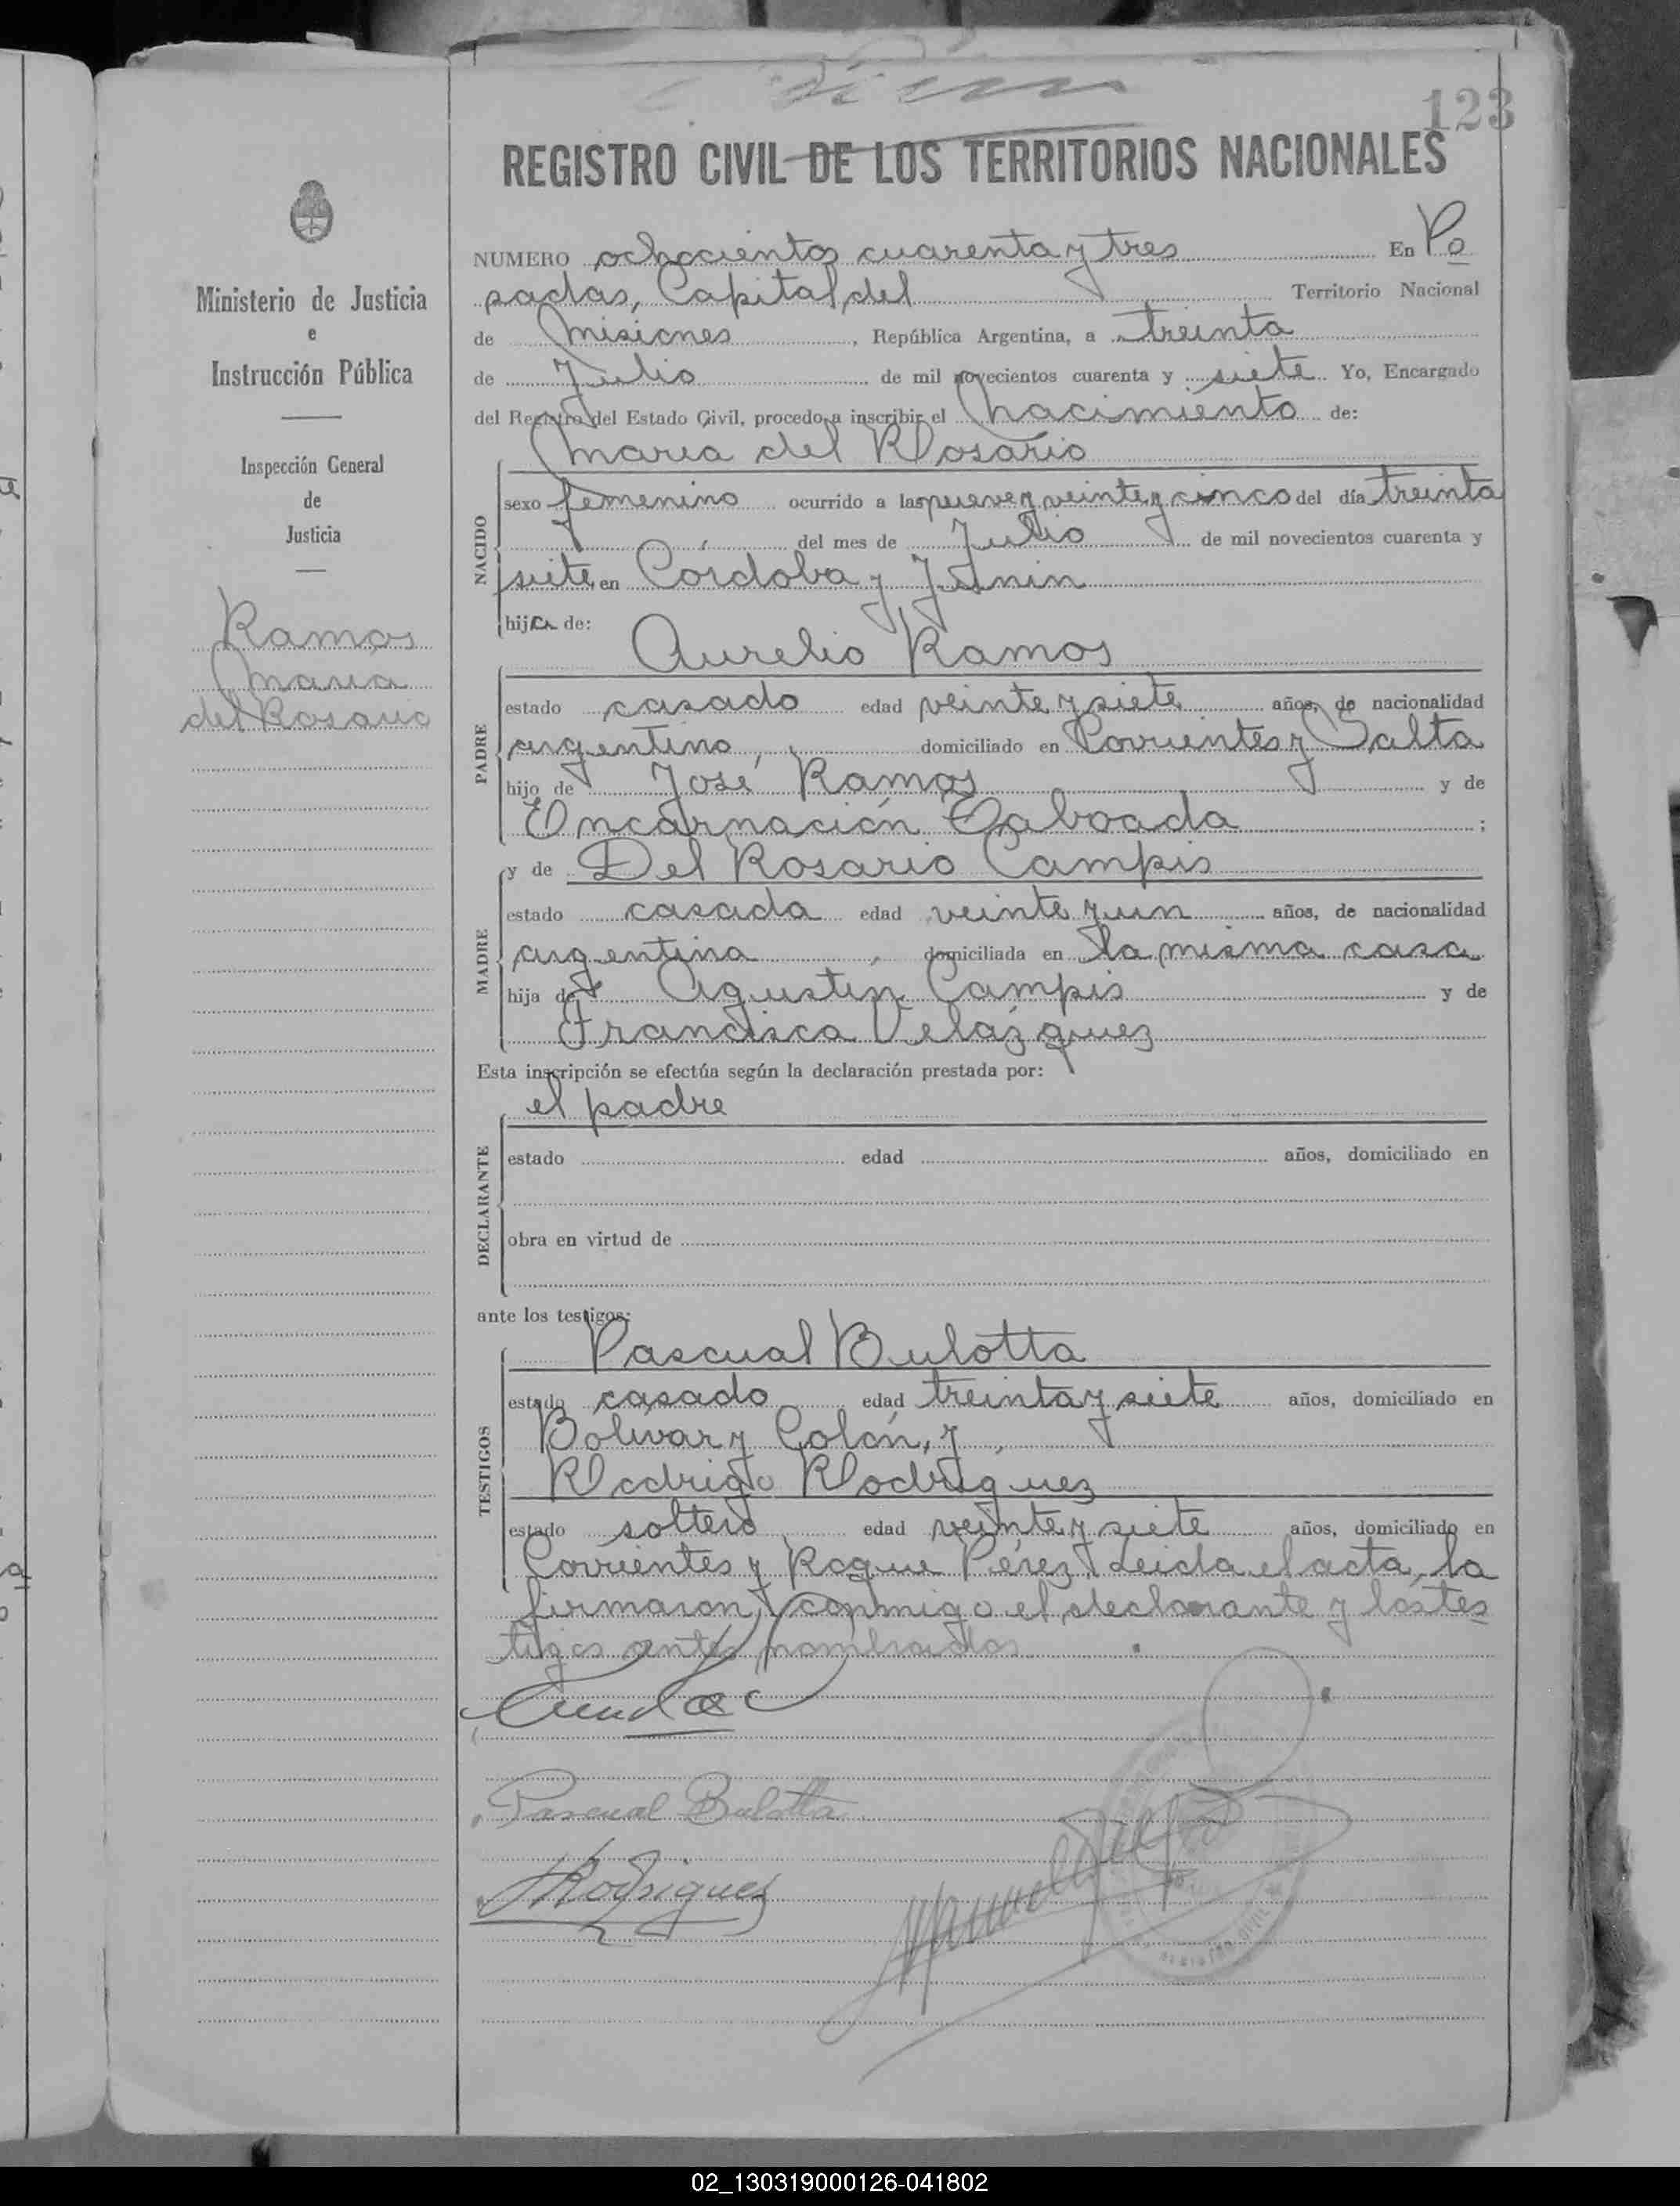 123
REGISTRO CIVIL DE LOS TERRITORIOS NACIONALES
NUMERO ochocientos cuarenta y tres En Po
sadas, Capital del Territorio Nacional
de Misiones, República Argentina, a treinta
de Julio de mil novecientos cuarenta y siete Yo, Encargado
del Registro del Estado Civil, procedo a inscribir el Nacimiento de:
María del Rosario
NACIDO
sexo femenino ocurrido a las nueve y veinte y cinco del día treinta
del mes de Julio de mil novecientos cuarenta y
siete en Córdoba y Junin
hija de:
Aurelio Ramos
PADRE
estado casado edad veinte y siete años, de nacionalidad
argentino, domiciliado en Corrientes y Salta
hijo de José Ramos y de
Encarnación Taboada ;
MADRE
y de Del Rosario Campis
estado casada edad veinte y un años, de nacionalidad
argentina, domiciliada en la misma casa
hija de Agustín Campis y de
Francisca Velázquez
Esta inscripción se efectúa según la declaración prestada por:
el padre
DECLARANTE
estado edad años, domiciliado en
obra en virtud de
ante los testigos:
Pascual Bulotta
TESTIGOS
estado casado edad treinta y siete años, domiciliado en
Bolívar y Colón, y
Rodrigo Rodríguez
estado soltero edad veinte y siete años, domiciliado en
Corrientes y Roque Pérez. Leida el acta, la
firmaron conmigo el declarante y los tes
tigos antes nombrados
Pascual Bulotta
Rodriguez
REGISTRO CIVIL
Ministerio de Justicia
e
Instrucción Pública
Inspección General
de
Justicia
Ramos
María
del Rosario
02_130319000126-041802